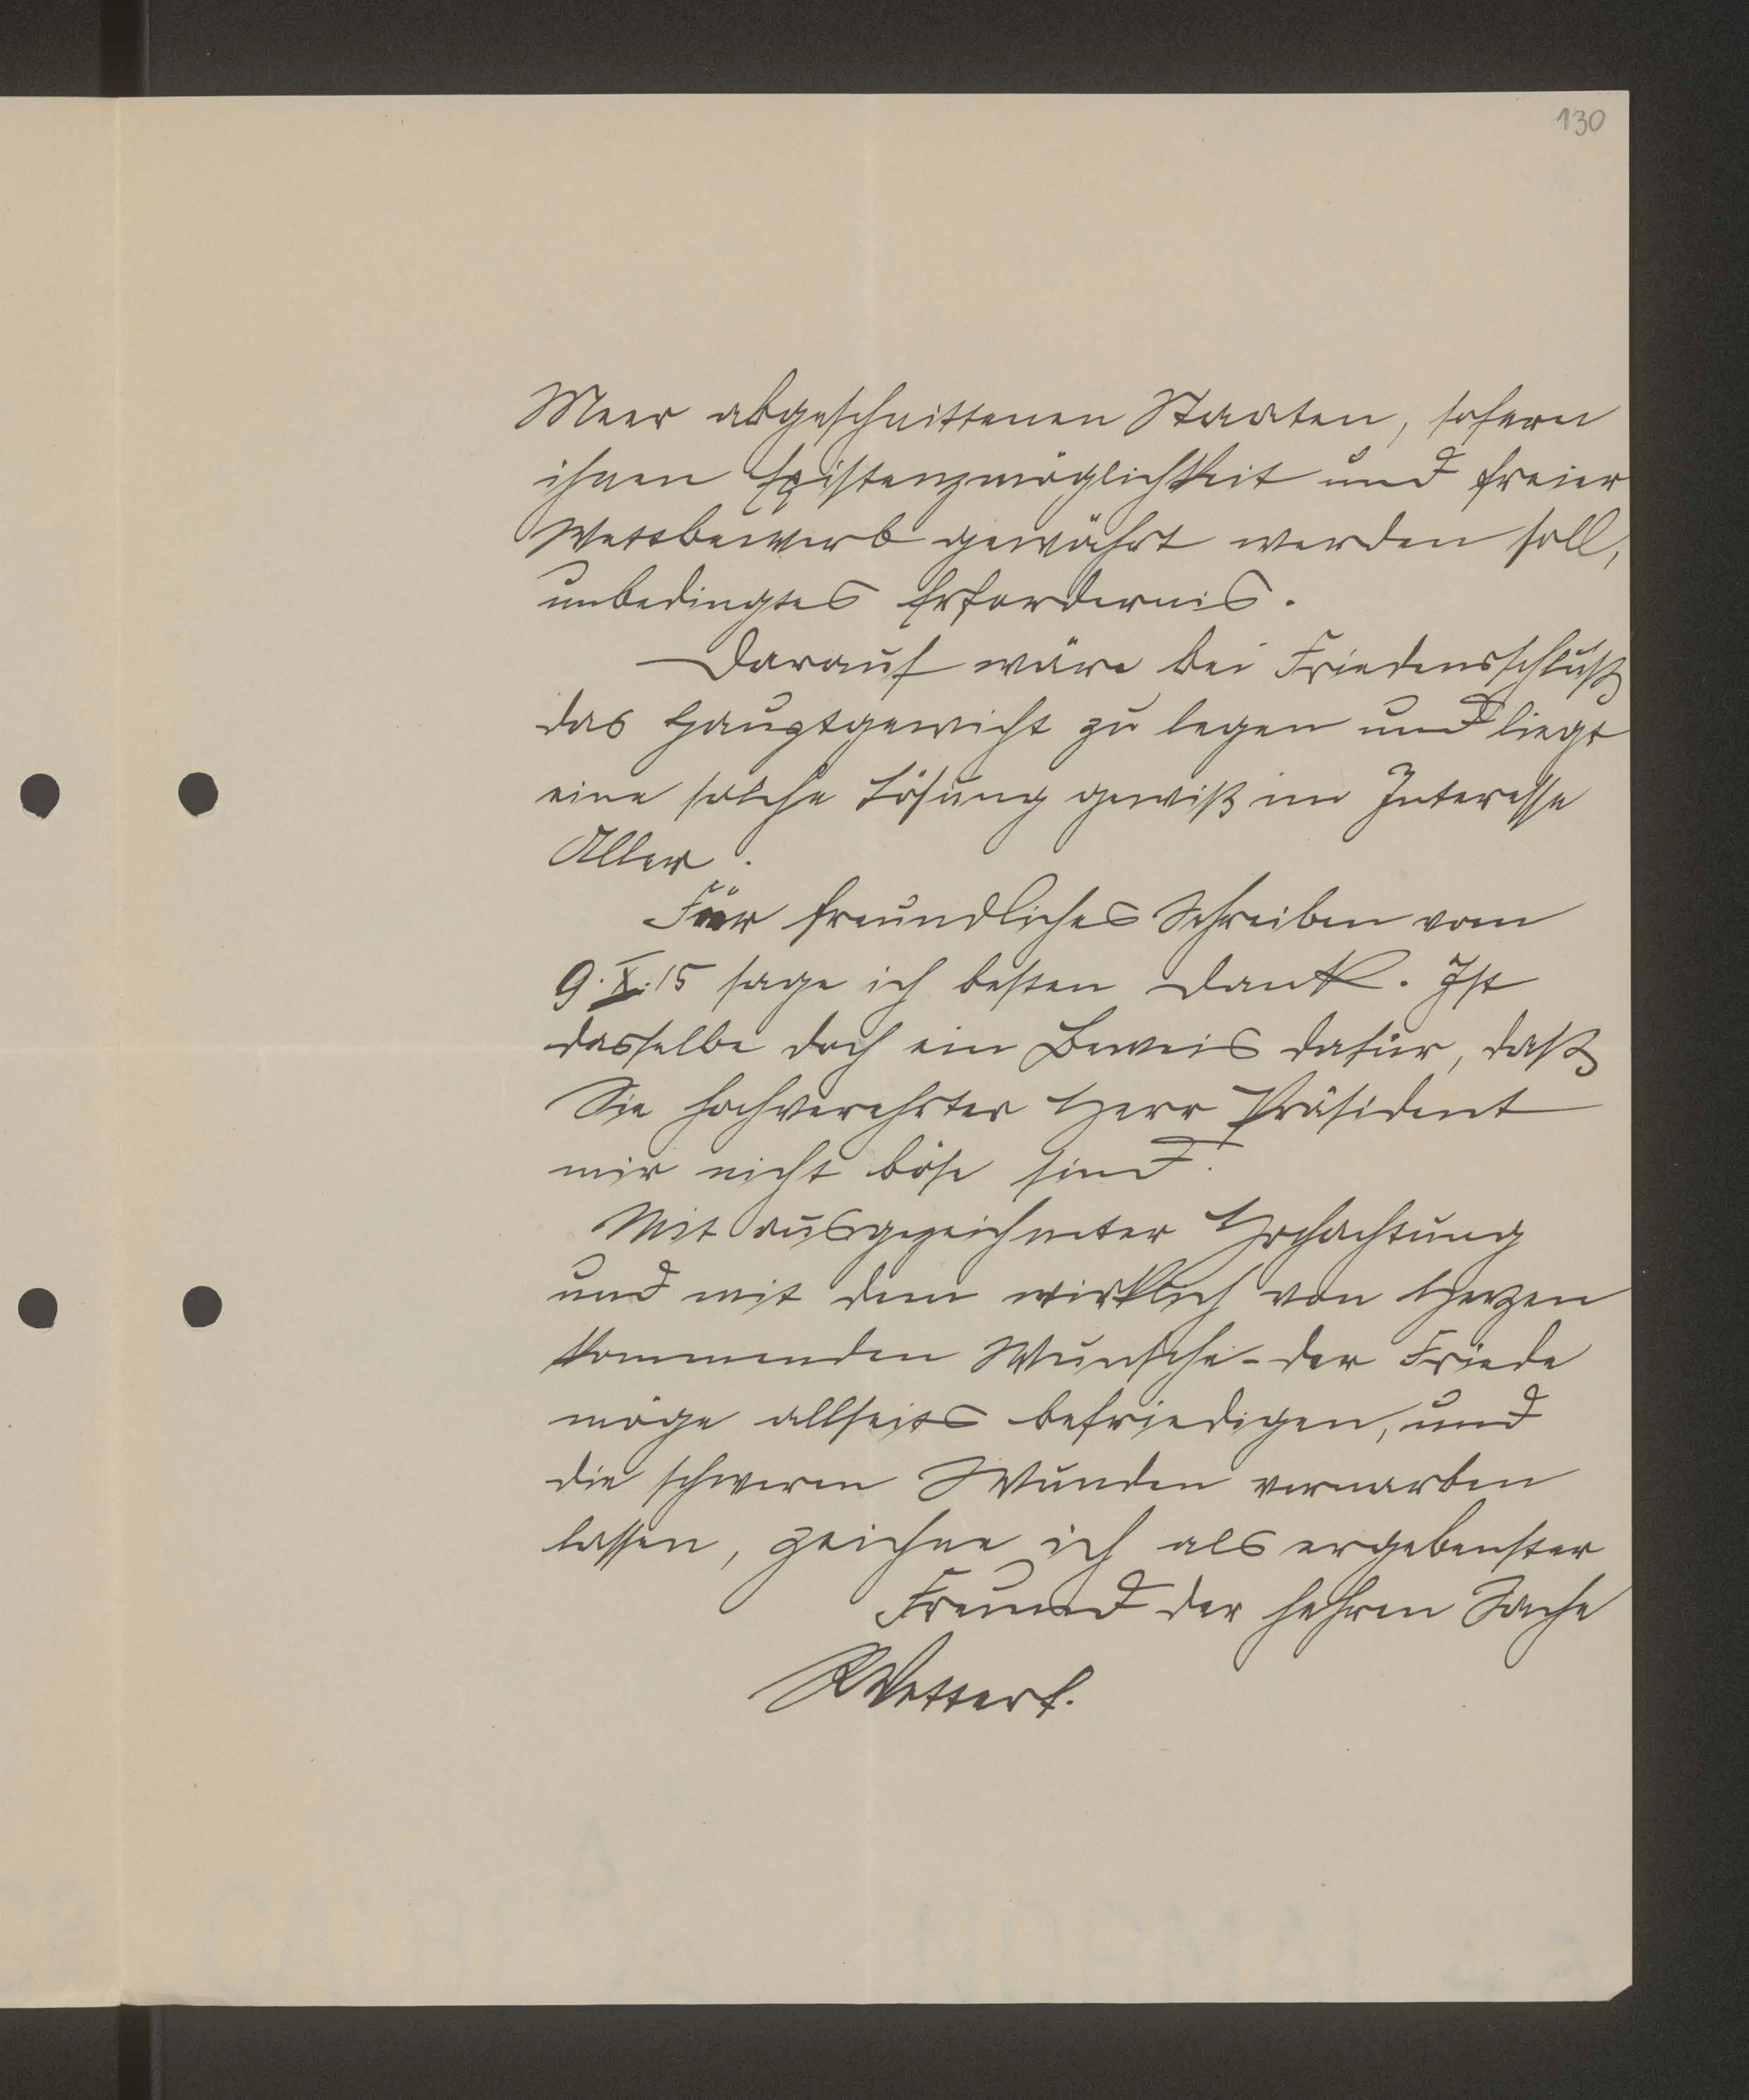 130
Meer abgeschnittenen Staaten, sofern
ihnen Existenzmöglichkeit und freier
Wettbewerb gewährt werden soll,
unbedingtes Erfordernis.
Darauf wäre bei Friedensschluß
das Hauptgewicht zu legen und liegt
eine solche Lösung gewiß im Interesse
Aller.
Für freundliches Schreiben vom
9.X.15 sage ich besten Dank. Ist
dasselbe doch ein Beweis dafür, daß
Sie hochverehrter Herr Präsident
mir nicht böse sind.
Mit ausgezeichneter Hochachtung
und mit dem wirklich von Herzen
kommenden Wunsche - der Friede
möge allseits befriedigen, und
die schweren Wunden vernarben
lassen, zeichne ich als ergebenster
Freund der hehren Sache